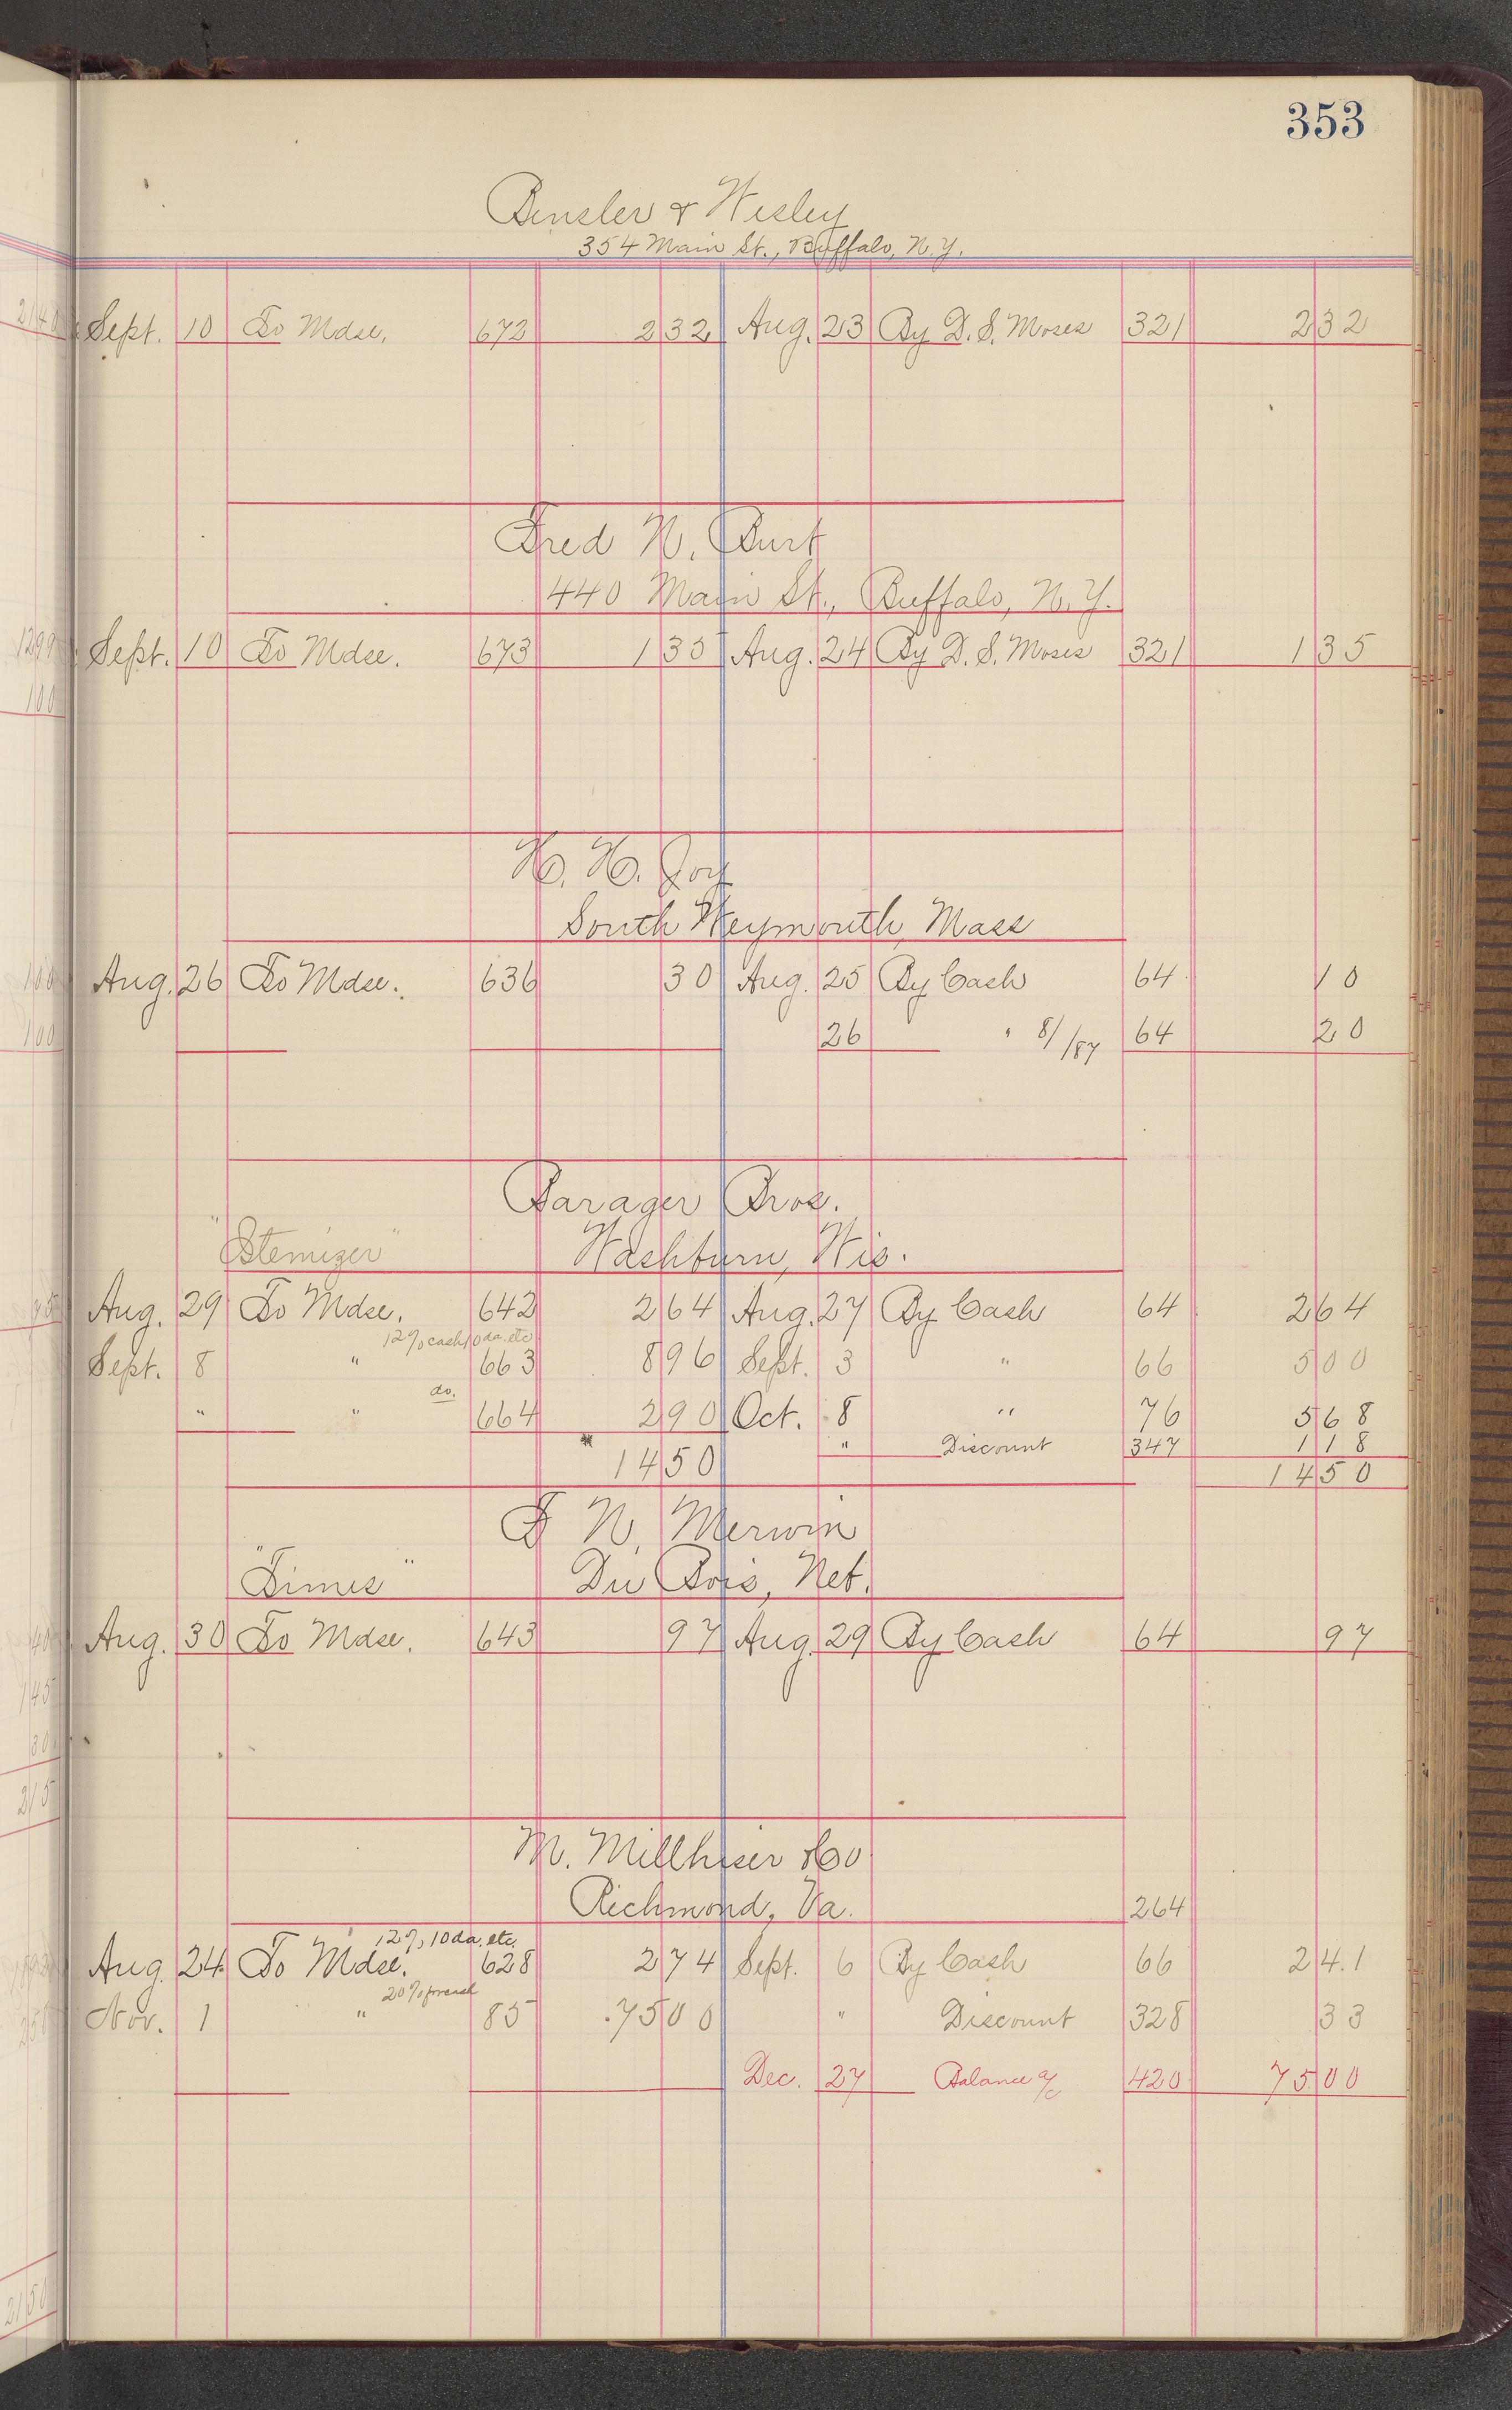 353
Bensler & Wesley
354 Main St., Buffalo, N.Y.
Sept. 10 To Mdse. 672 232 Aug. 23 By D. S. Moses 321 232
Fred N. Burt
440 Main St., Buffalo, N.Y.
Sept. 10 To Mdse. 673 135 Aug. 24 By D. S. Moses 321 135
H. H. Joy
South Weymouth, Mass
Aug. 26 To Mdse. 636 30 Aug. 25 By Cash 64 10
26 " 8/ /87 64 20
Barager Bros.
"Itemizer" Washburn, Wis.
Aug. 29 To Mdse. 642 264 Aug. 27 By Cash 64 264
12% cash 10 da. etc
Sept. 8 " 663 896 Sept. 3 " 66 500
do.
" " 664 290 Oct. 8 " 76 568
" Discount 347 118
1450 1450
F N. Merwin
"Times" Du Bois, Neb.
Aug. 30 To Mdse. 643 97 Aug. 29 By Cash 64 97
M. Millhiser & Co
Richmond, Va. 264
12% 10 da. etc.
Aug. 24 To Mdse. 628 274 Sept. 6 By Cash 66 241
20%
Nov. 1 " 85 7500 " Discount 328 33
Dec. 27 Balance a/c 420 7500